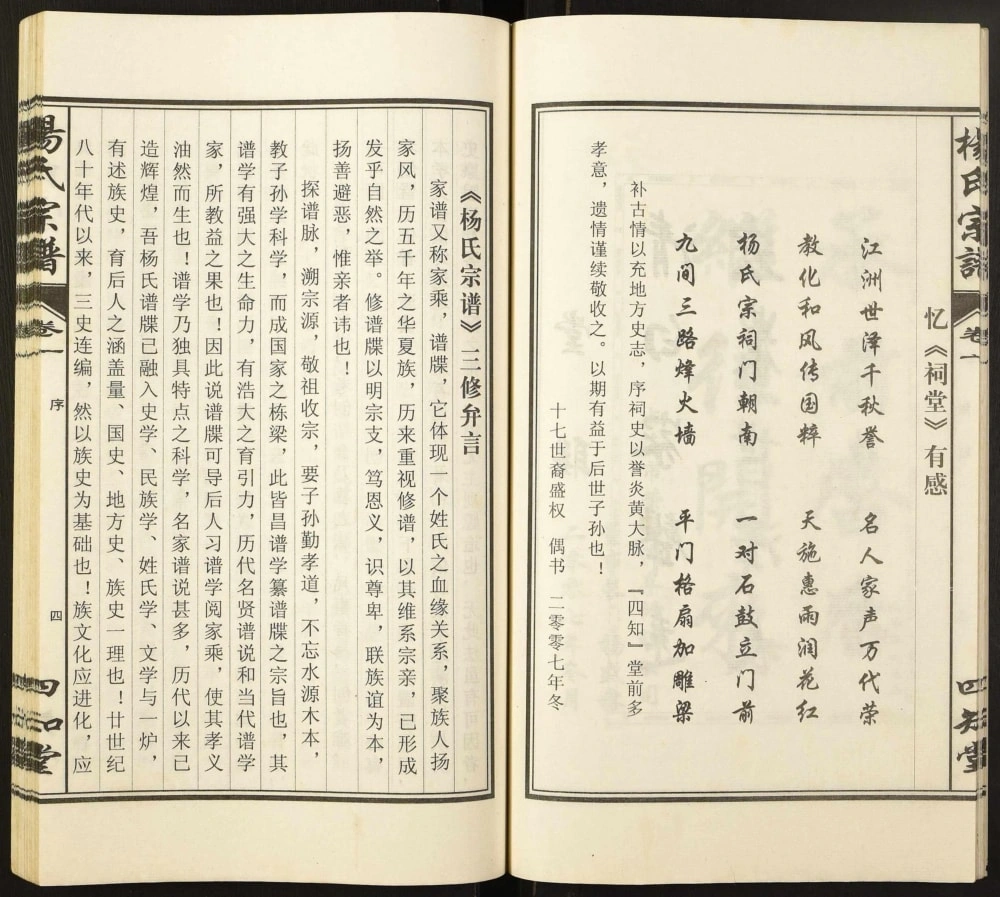 忆《祠堂》有感
江洲世泽千秋誉 名人家声万代荣
教化和风传国粹 天施惠雨润花红
杨氏宗祠门朝南 一对石鼓立门前
九间三路烽火墙 平门格扇加雕梁
补古情以充地方史志，序祠史以誉炎黄大脉，『四知』堂前多
孝意，遗情谨续敬收之。以期有益于后世子孙也！
十七世裔盛权 偶书 二零零七年冬
楊氏宗譜
卷一
四知堂
《杨氏宗谱》三修弁言
家谱又称家乘，谱牒，它体现一个姓氏之血缘关系，聚族人扬
家风，历五千年之华夏族，历来重视修谱，以其维系宗亲，已形成
发乎自然之举。修谱牒以明宗支，笃恩义，识尊卑，联族谊为本，
扬善避恶，惟亲者讳也！
探谱脉，溯宗源，敬祖收宗，要子孙勤孝道，不忘水源木本，
教子孙学科学，而成国家之栋梁，此皆昌谱学纂谱牒之宗旨也，其
谱学有强大之生命力，有浩大之育引力，历代名贤谱说和当代谱学
家，所教益之果也！因此说谱牒可导后人习谱学阅家乘，使其孝义
油然而生也！谱学乃独具特点之科学，名家谱说甚多，历代以来已
造辉煌，吾杨氏谱牒已融入史学、民族学、姓氏学、文学与一炉，
有述族史，育后人之涵盖量、国史、地方史、族史一理也！廿世纪
八十年代以来，三史连编，然以族史为基础也！族文化应进化，应
楊氏宗譜
卷一
序
四
四知堂